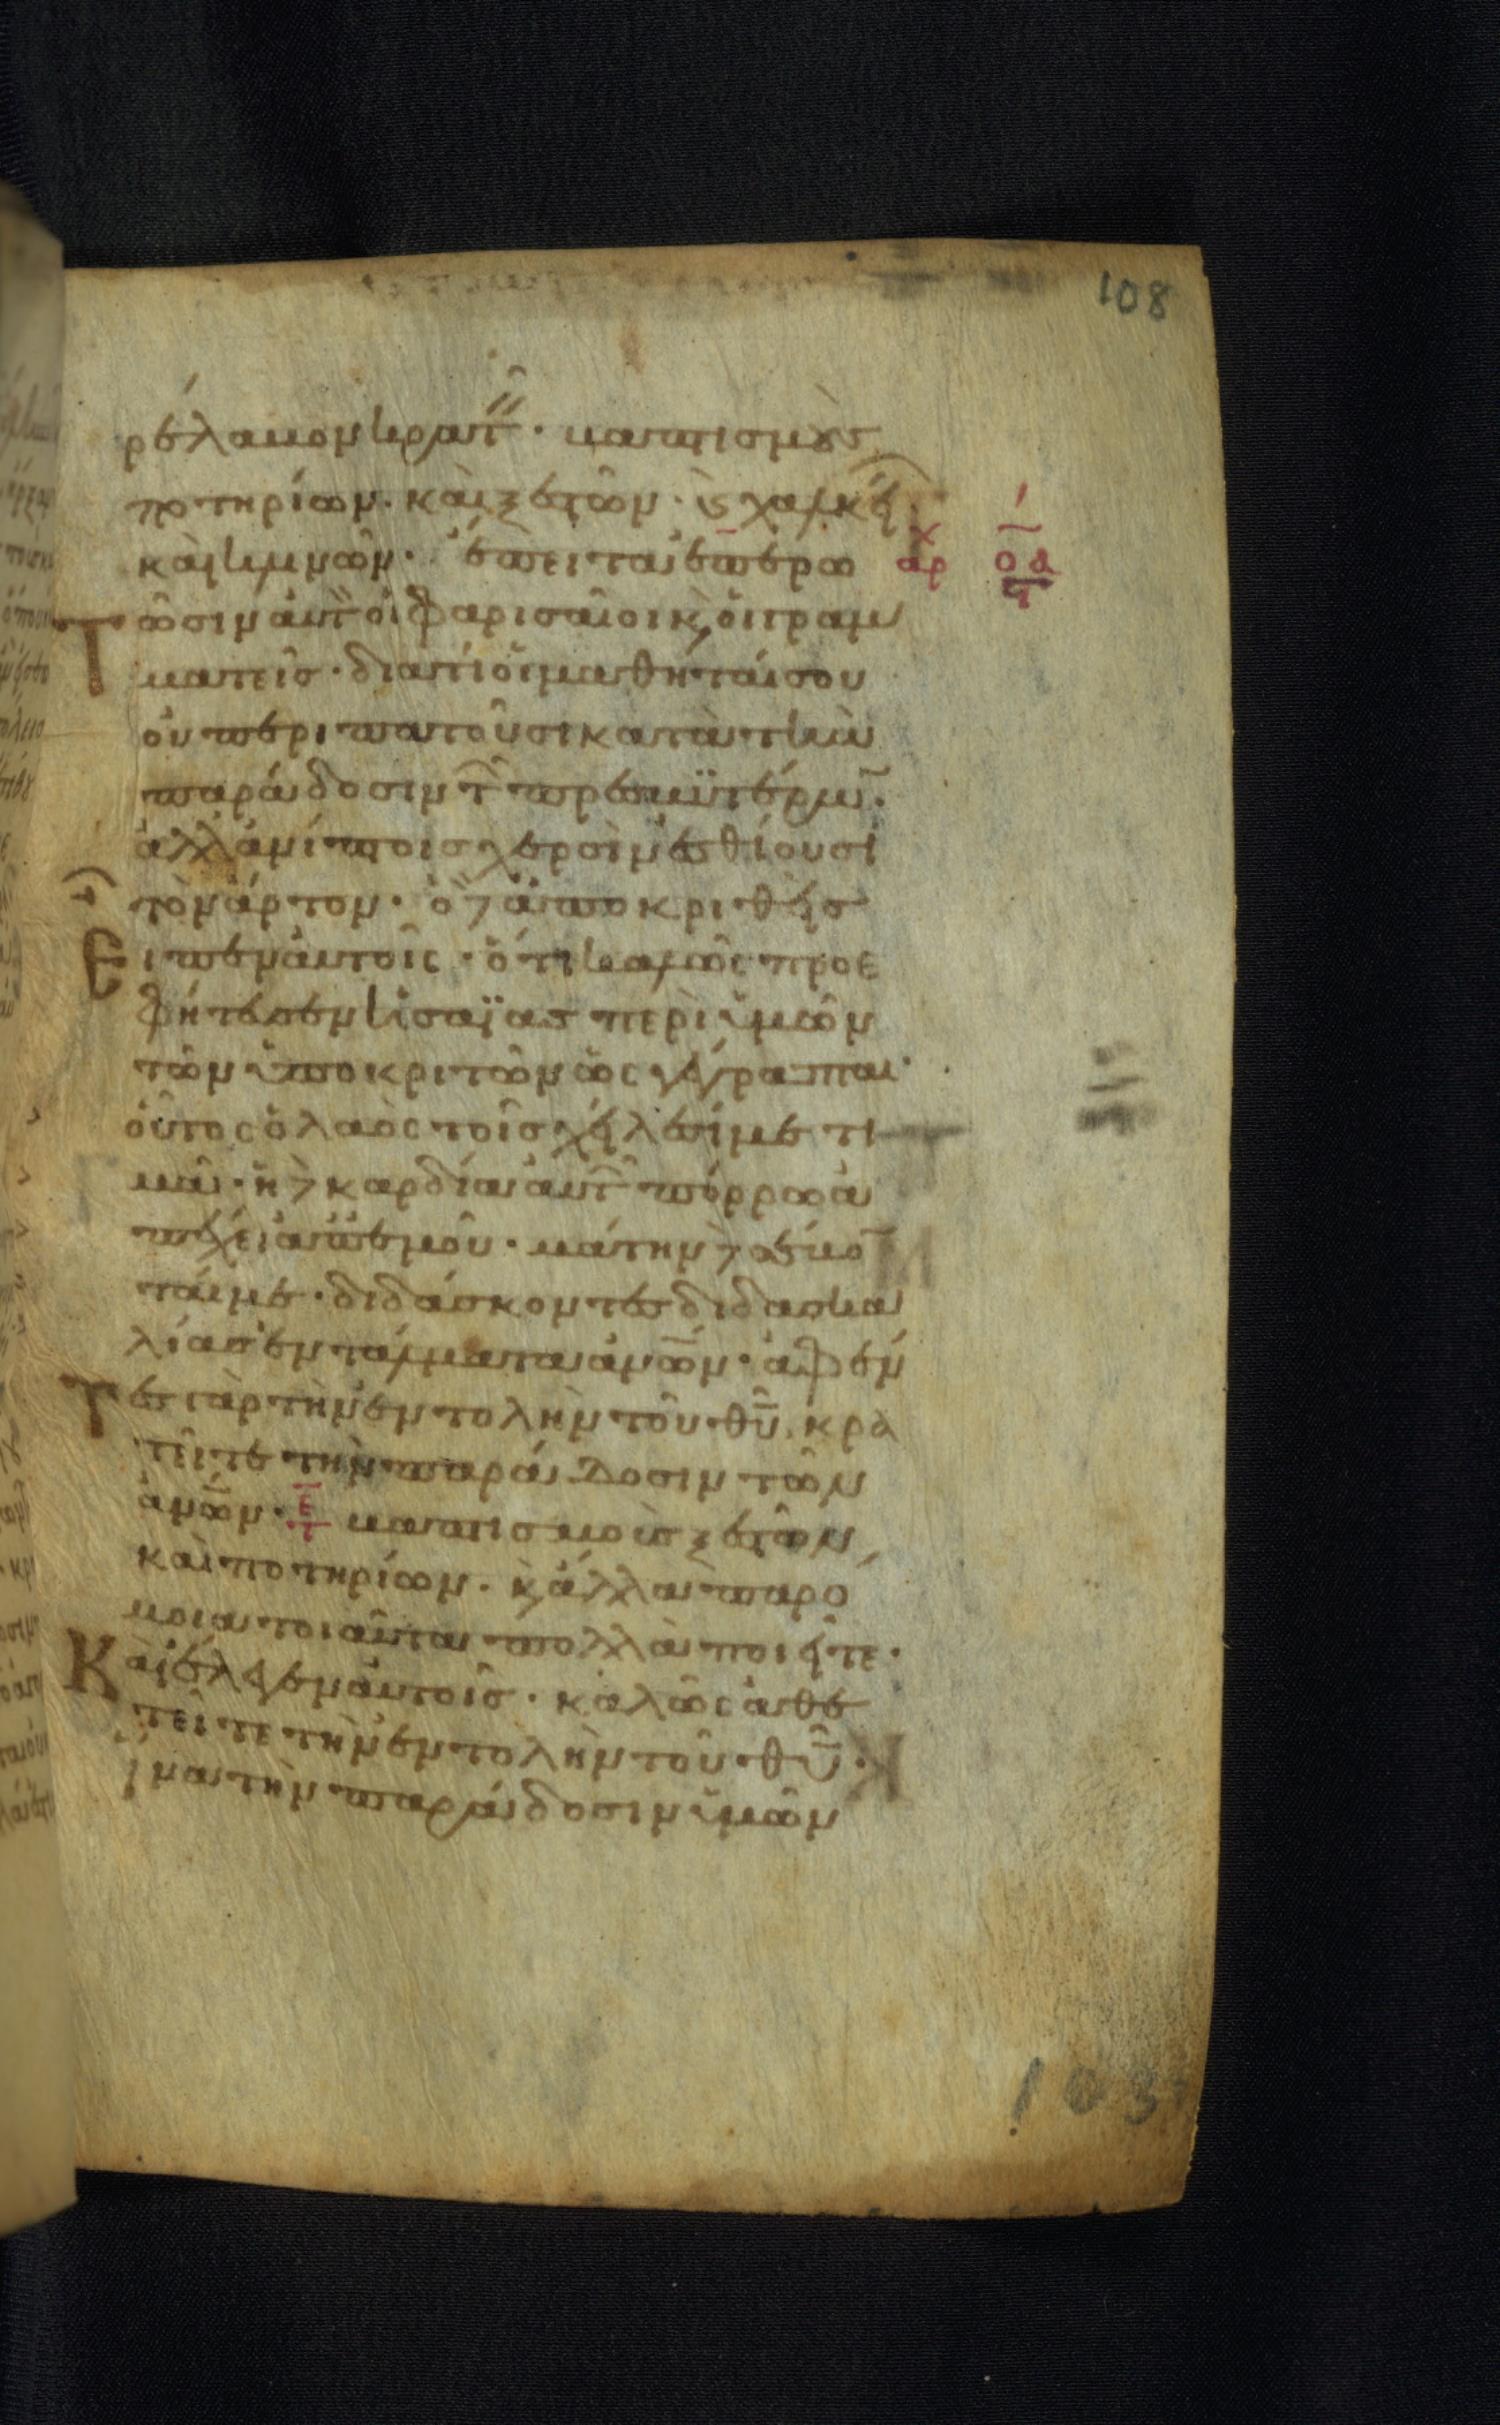 108
ρέλαβον κρατεῖν · βαπτισμοὺς
ποτηρίων · καὶ ξεστῶν · καὶ χαλκείων
καὶ κλινῶν · ἔπειτα ἐπερω
αρχ οα
Τῶσιν αὐτὸν οἱ φαρισαῖοι καὶ οἱ γραμ
ματεῖς · διατί οἱ μαθηταί σου
οὐ περιπατοῦσι κατὰ τὴν
παράδοσιν τῶν πρεσβυτέρων ·
ἀλλὰ ἀνίπτοις χερσὶν ἐσθίουσι
τὸν ἄρτον · ὁ δὲ ἀποκριθεὶς
Εἶπεν αὐτοῖς · ὅτι καλῶς προε
φήτευσεν ἡσαΐας περὶ ὑμῶν
τῶν ὑποκριτῶν ὡς γέγραπται ·
οὗτος ὁ λαὸς τοῖς χείλεσί με τι
μᾶ · ἡ δὲ καρδία αὐτῶν πόρρω ἀ
πέχει ἀπ' ἐμοῦ · μάτην δὲ σέβο
ταί με · διδάσκοντες διδασκα
λίας ἐντάλματα ἀνων · ἀφέν
Τες γὰρ τὴν ἐντολὴν τοῦ θυ κρα
τεῖτε τὴν παράδοσιν τῶν
ἀνων · βαπτισμοὺς ξεστῶν
καὶ ποτηρίων · καὶ ἄλλα παρό
μοια τοιαῦτα πολλὰ ποιεῖτε ·
Καὶ ἔλεγεν αὐτοῖς · καλῶς ἀθε
τεῖτε τὴν ἐντολὴν τοῦ θυ ·
ἵνα τὴν παράδοσιν ὑμῶν
103